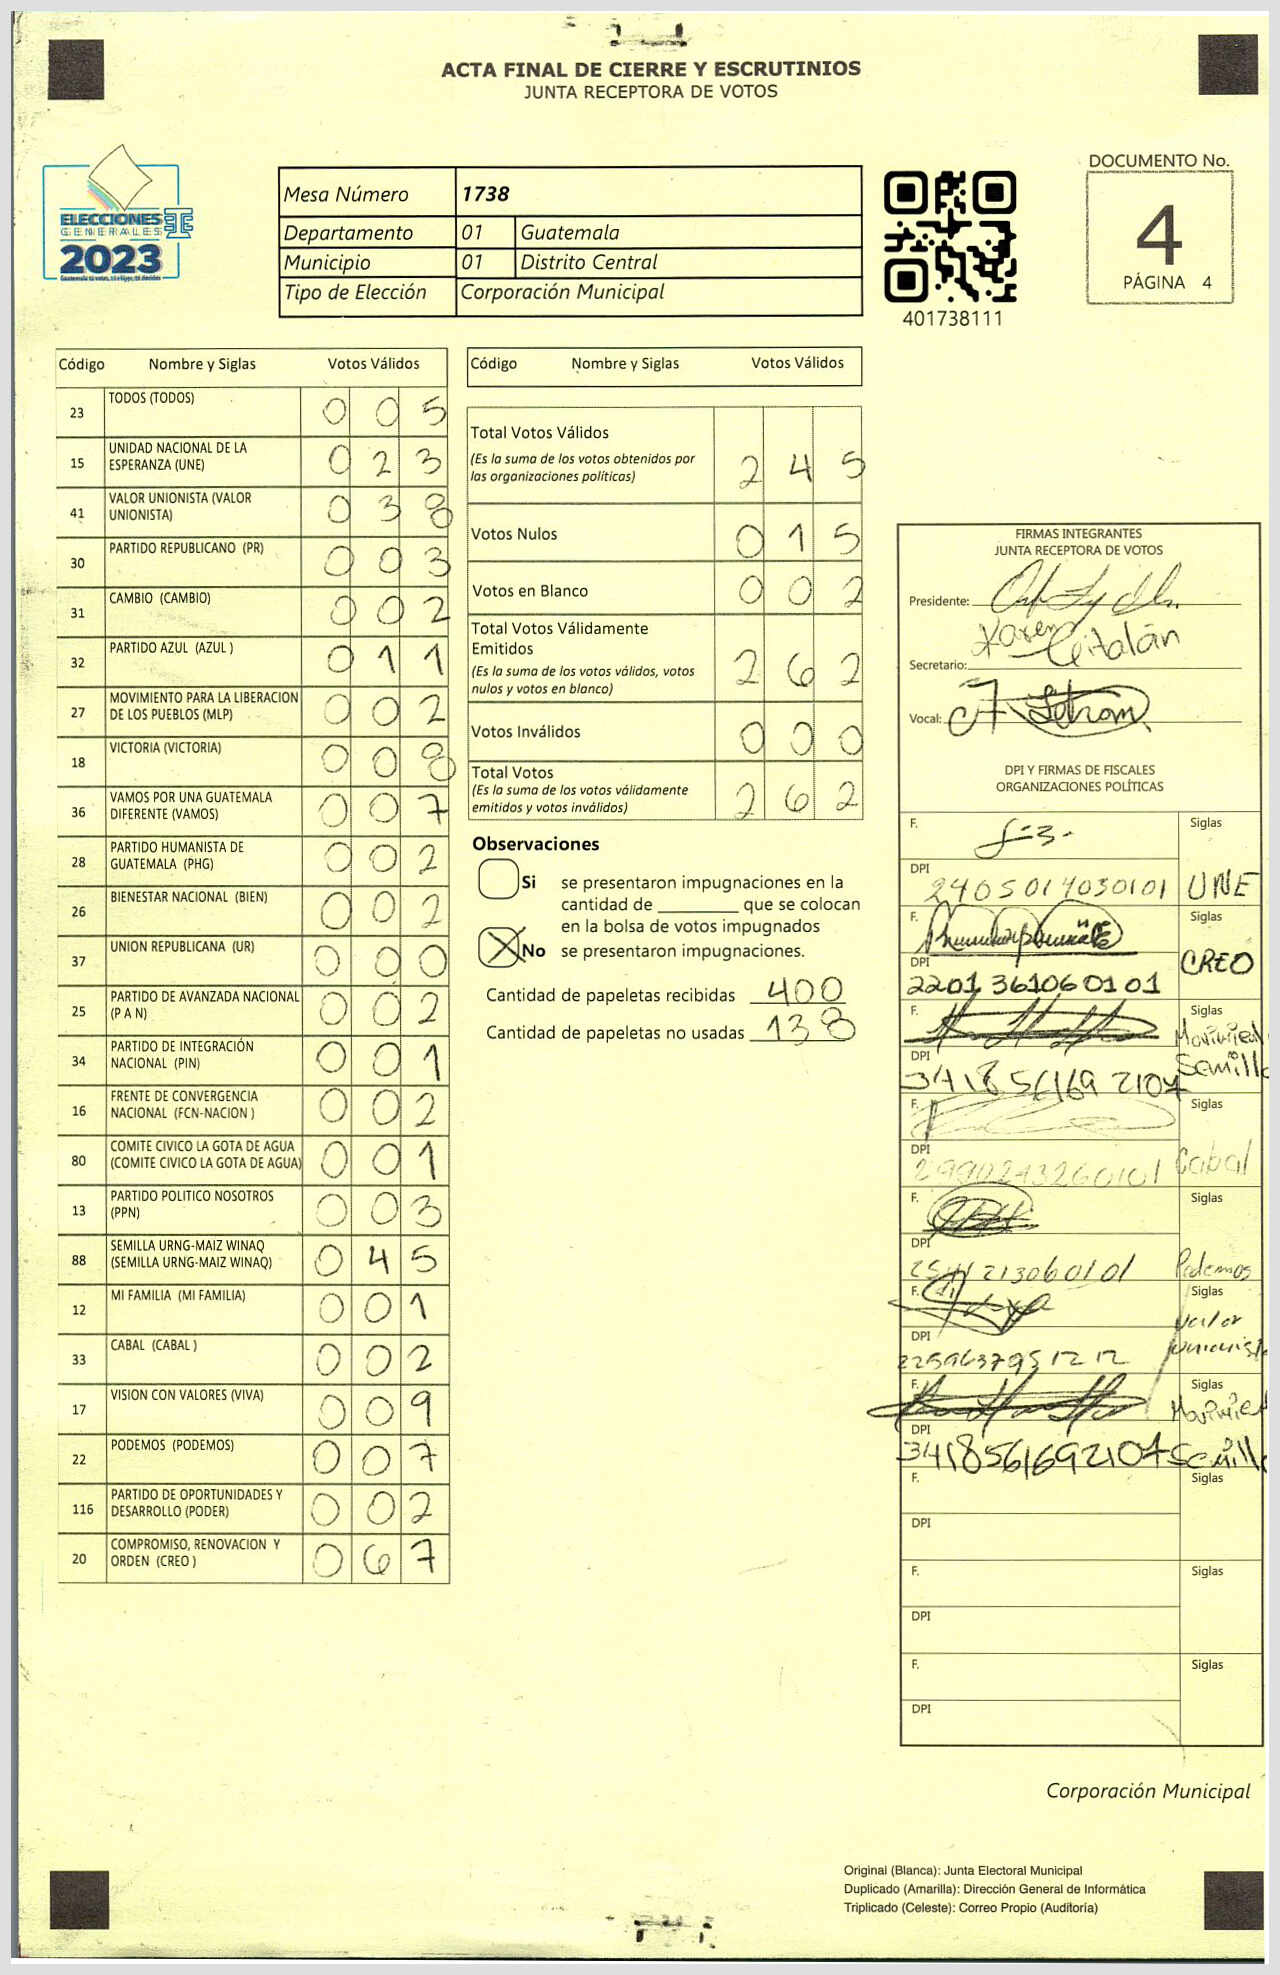 ACTA FINAL DE CIERRE Y ESCRUTINIOS
JUNTA RECEPTORA DE VOTOS
ELECCIONES
GENERALES
2023
Mesa Número 1738
Departamento 01 Guatemala
Municipio 01 Distrito Central
Tipo de Elección Corporación Municipal
401738111
DOCUMENTO No.
4
PÁGINA 4
Código Nombre y Siglas Votos Válidos
TODOS (TODOS)
23 0 0 5
UNIDAD NACIONAL DE LA
15 ESPERANZA (UNE) 0 2 3
VALOR UNIONISTA (VALOR
41 UNIONISTA) 0 3 8
PARTIDO REPUBLICANO (PR)
30 0 0 3
CAMBIO (CAMBIO)
31 0 0 2
PARTIDO AZUL (AZUL )
32 0 1 1
MOVIMIENTO PARA LA LIBERACION
27 DE LOS PUEBLOS (MLP) 0 0 2
VICTORIA (VICTORIA)
18 0 0 8
VAMOS POR UNA GUATEMALA
36 DIFERENTE (VAMOS) 0 0 7
PARTIDO HUMANISTA DE
28 GUATEMALA (PHG) 0 0 2
BIENESTAR NACIONAL (BIEN)
26 0 0 2
UNION REPUBLICANA (UR)
37 0 0 0
PARTIDO DE AVANZADA NACIONAL
25 (P A N) 0 0 2
PARTIDO DE INTEGRACIÓN
34 NACIONAL (PIN) 0 0 1
FRENTE DE CONVERGENCIA
16 NACIONAL (FCN-NACION ) 0 0 2
COMITE CIVICO LA GOTA DE AGUA
80 (COMITE CIVICO LA GOTA DE AGUA) 0 0 1
PARTIDO POLITICO NOSOTROS
13 (PPN) 0 0 3
SEMILLA URNG-MAIZ WINAQ
88 (SEMILLA URNG-MAIZ WINAQ) 0 4 5
MI FAMILIA (MI FAMILIA)
12 0 0 1
CABAL (CABAL )
33 0 0 2
VISION CON VALORES (VIVA)
17 0 0 9
PODEMOS (PODEMOS)
22 0 0 7
PARTIDO DE OPORTUNIDADES Y
116 DESARROLLO (PODER) 0 0 2
COMPROMISO, RENOVACION Y
20 ORDEN (CREO ) 0 6 7
Código Nombre y Siglas Votos Válidos
Total Votos Válidos
(Es la suma de los votos obtenidos por
las organizaciones políticas) 2 4 5
Votos Nulos 0 1 5
Votos en Blanco 0 0 2
Total Votos Válidamente
Emitidos
(Es la suma de los votos válidos, votos
nulos y votos en blanco) 2 6 2
Votos Inválidos 0 0 0
Total Votos
(Es la suma de los votos válidamente
emitidos y votos inválidos) 2 6 2
Observaciones
Si se presentaron impugnaciones en la
cantidad de _________ que se colocan
en la bolsa de votos impugnados
No se presentaron impugnaciones.
Cantidad de papeletas recibidas 400
Cantidad de papeletas no usadas 138
FIRMAS INTEGRANTES
JUNTA RECEPTORA DE VOTOS
Presidente:
Karen Citalán
Secretario:
Vocal:
DPI Y FIRMAS DE FISCALES
ORGANIZACIONES POLÍTICAS
F. Siglas
DPI
2405014030101 UNE
F. Siglas
DPI CREO
2201 36106 0101
F. Siglas
DPI
3418 56169 2107 Semilla
F. Siglas
DPI
2990243260101 Cabal
F. Siglas
DPI
2541213060101 Podemos
F. Siglas
Valor
DPI
F. Siglas
DPI
3418561692107 Semilla
F. Siglas
DPI
F. Siglas
DPI
F. Siglas
DPI
Corporación Municipal
Original (Blanca): Junta Electoral Municipal
Duplicado (Amarilla): Dirección General de Informática
Triplicado (Celeste): Correo Propio (Auditoría)